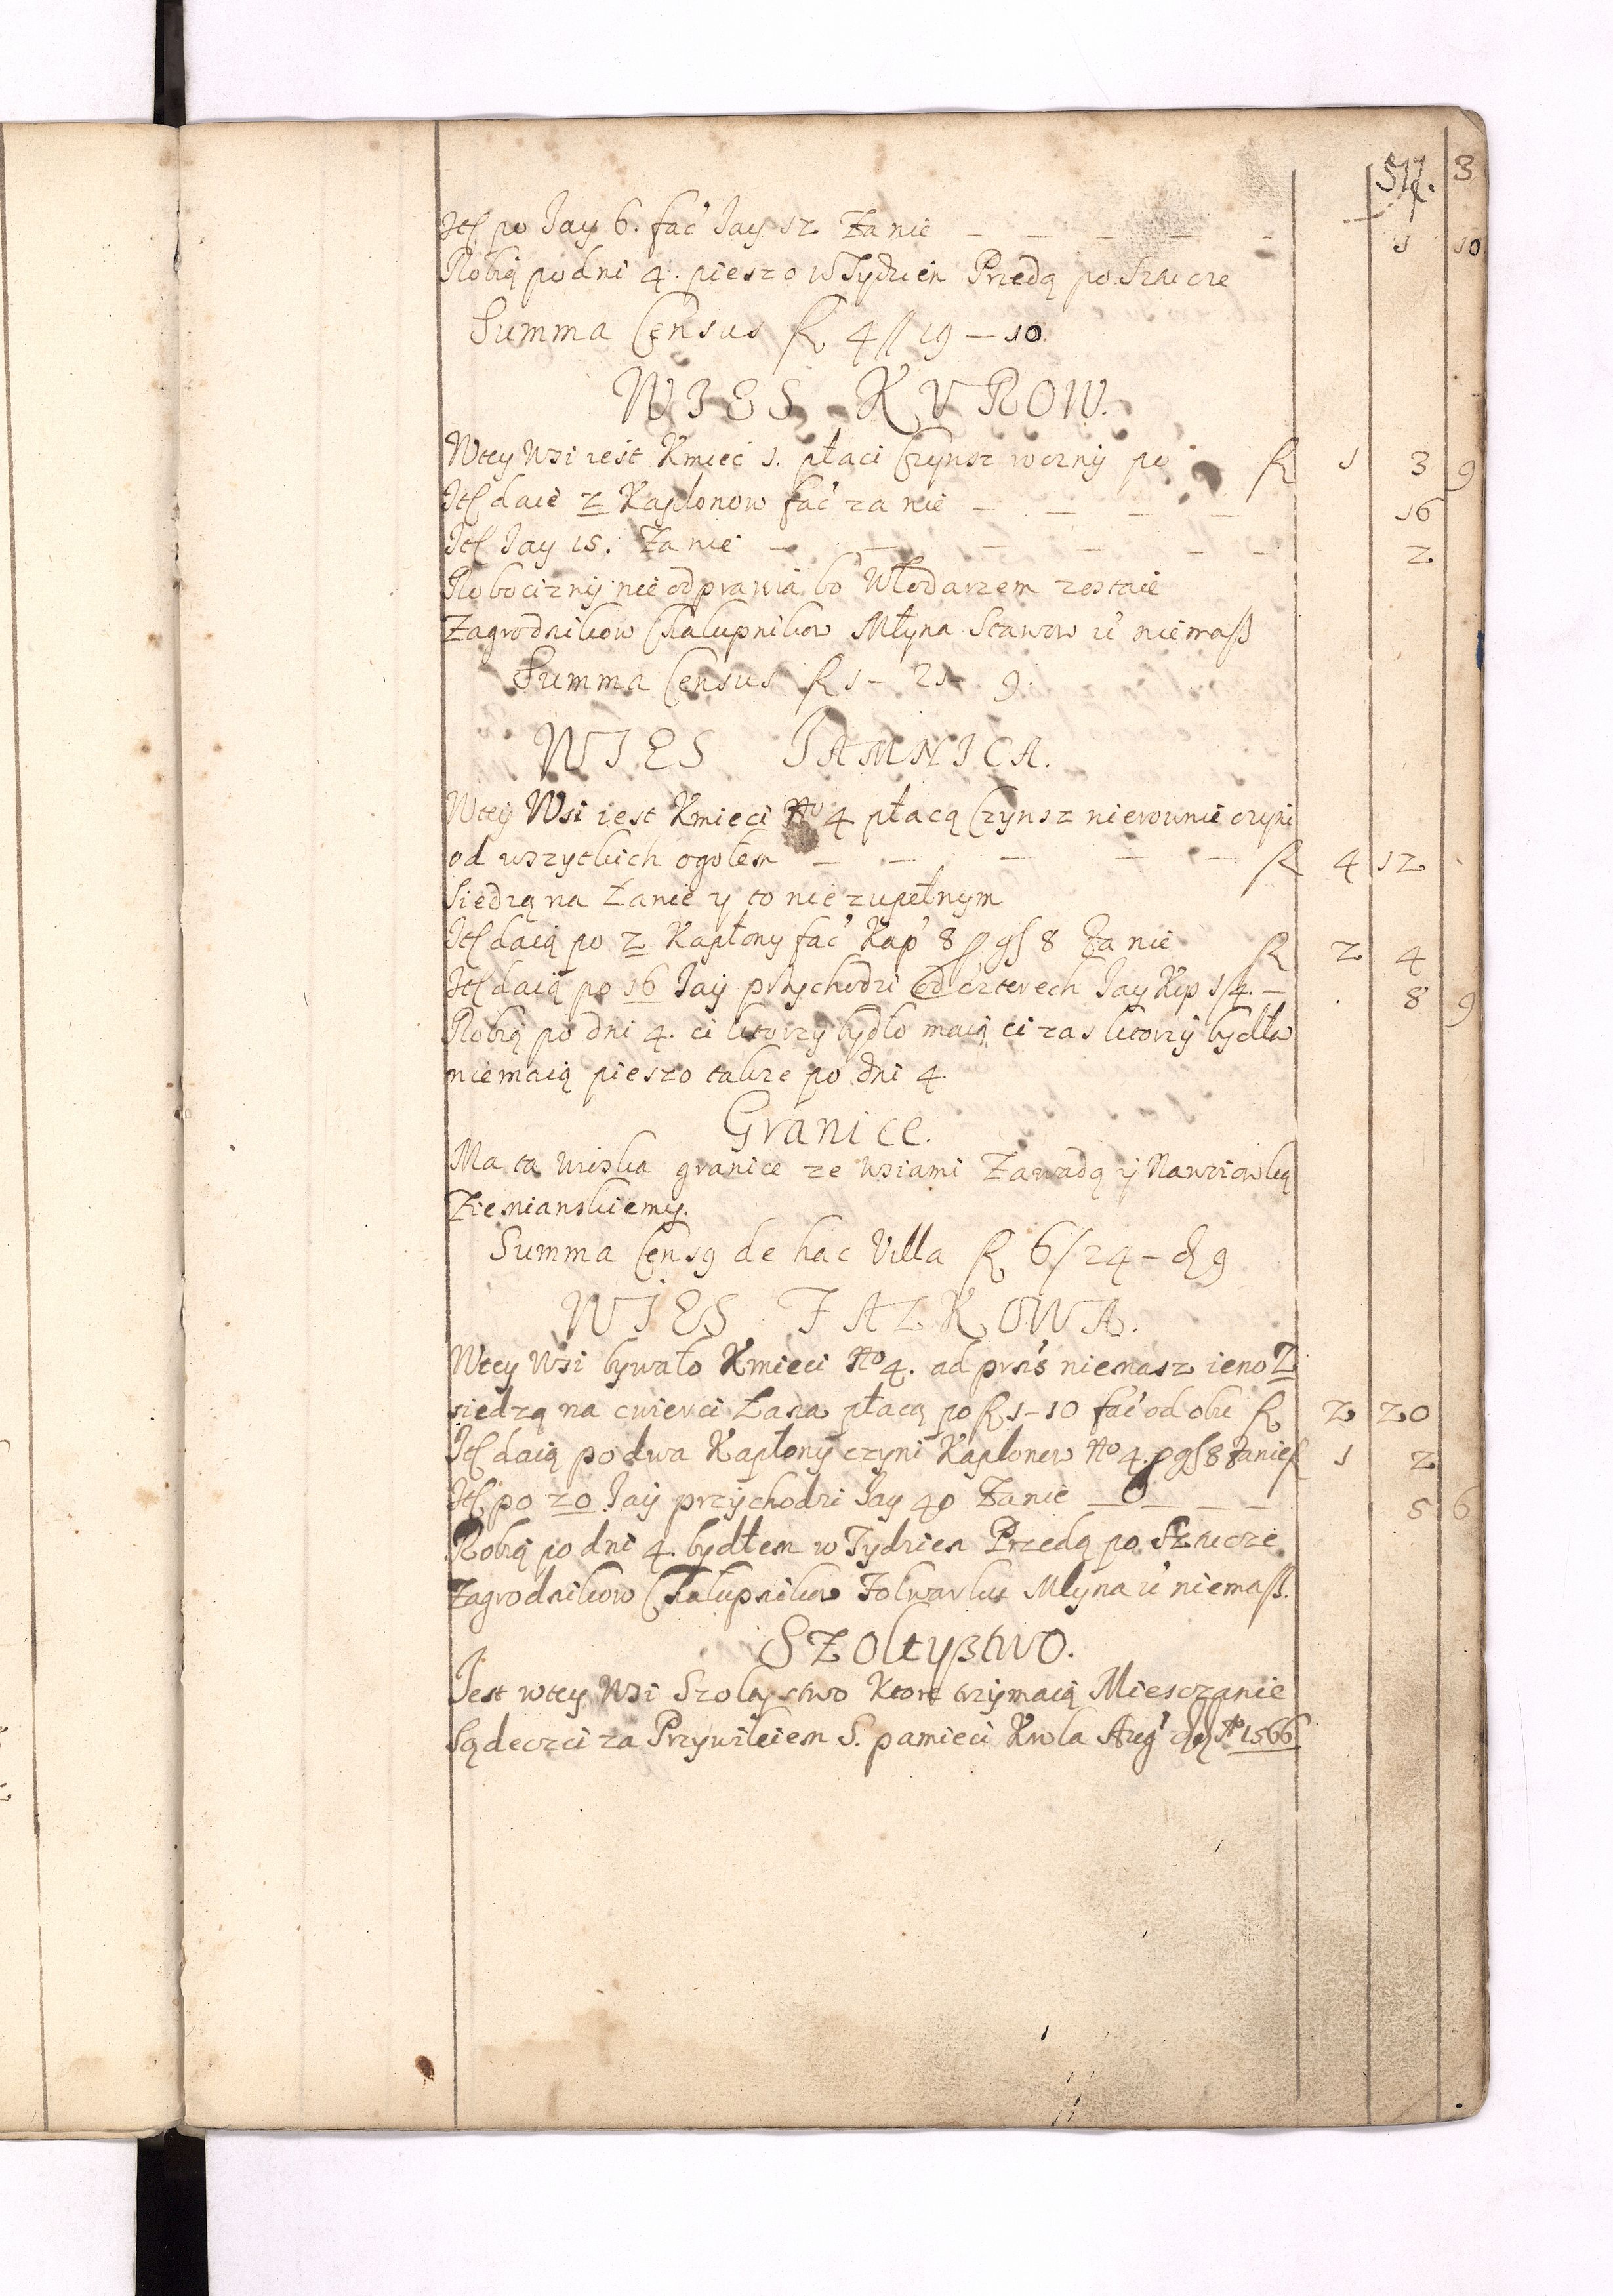 517. 3
Itẽ po Jay 6. fac' Jay 12 Za nie — — — — — 1 10
Robią po dni 4. pieszo w Tydzien Przedą po Sztucze
Summa Census fl 4 // 19 — 10.
WIES KVROW.
Wtey Wsi iest Kmieć 1. płaci Czynsz rocznij po fl 1 3 9
Itẽ daie 2 Kaplonow fac' za nie — — — — 16
Itẽ Jay 15. Za nie — — — — — — 2
Robocizny nie odprawia bo Włodarzem zostaie
Zagrodnikow Chalupnikow Młyna Stawow u' niemaß
Summa Census fl 1 – 21 – 9.
WIES JAMNICA.
Wtey Wsi iest Kmieci No 4 płacą Czynsz nierownie czyni
od wszytkich ogołem — — — — — fl 4 12
Siedzą na Łanie y to nie zupełnym
Itẽ daią po 2 Kapłony fac' Kap' 8 p gs 8 Za nie fl 2 4
Itẽ daią po 16 Jay przychodzi od czterech Jay Kop 1/4. — 8 9
Robią po dni 4. ci ktorzy bydło maią, ci zas ktorzy bydła
niemaią pieszo takze po dni 4.
Granice.
Ma ta wioska granice ze wsiami Zawadą ij Nawiowką
Ziemianskiemy.
Summa Censg de hac Villa fl 6 / 24 – d 9
WIES FALKOWA.
Wtey Wsi bywało Kmieci No 4. ad pns niemasz ieno 2
siedzą na cwierci Łana, płacą po fl 1–10 fac' od obu fl 2 20
Itẽ daią po dwa Kapłony czyni Kaplonow No 4. p gs 8 Za nie fl 1 2
Itẽ po 20 Jay przychodzi Jay 40 Za nie — — — — 5 6
Robią po dni 4. bydłem w Tydzien Przedą po Sztucze
Zagrodnikow Chalupnikow Folwarku Mlyna u' niemaß.
SZoltyßtwo.
Jest wtey Wsi Szoltystwo Ktore trzymaią Miesczanie
Sądeczci za Przywileiem S. pamieci Krola Aug' Ao 1566